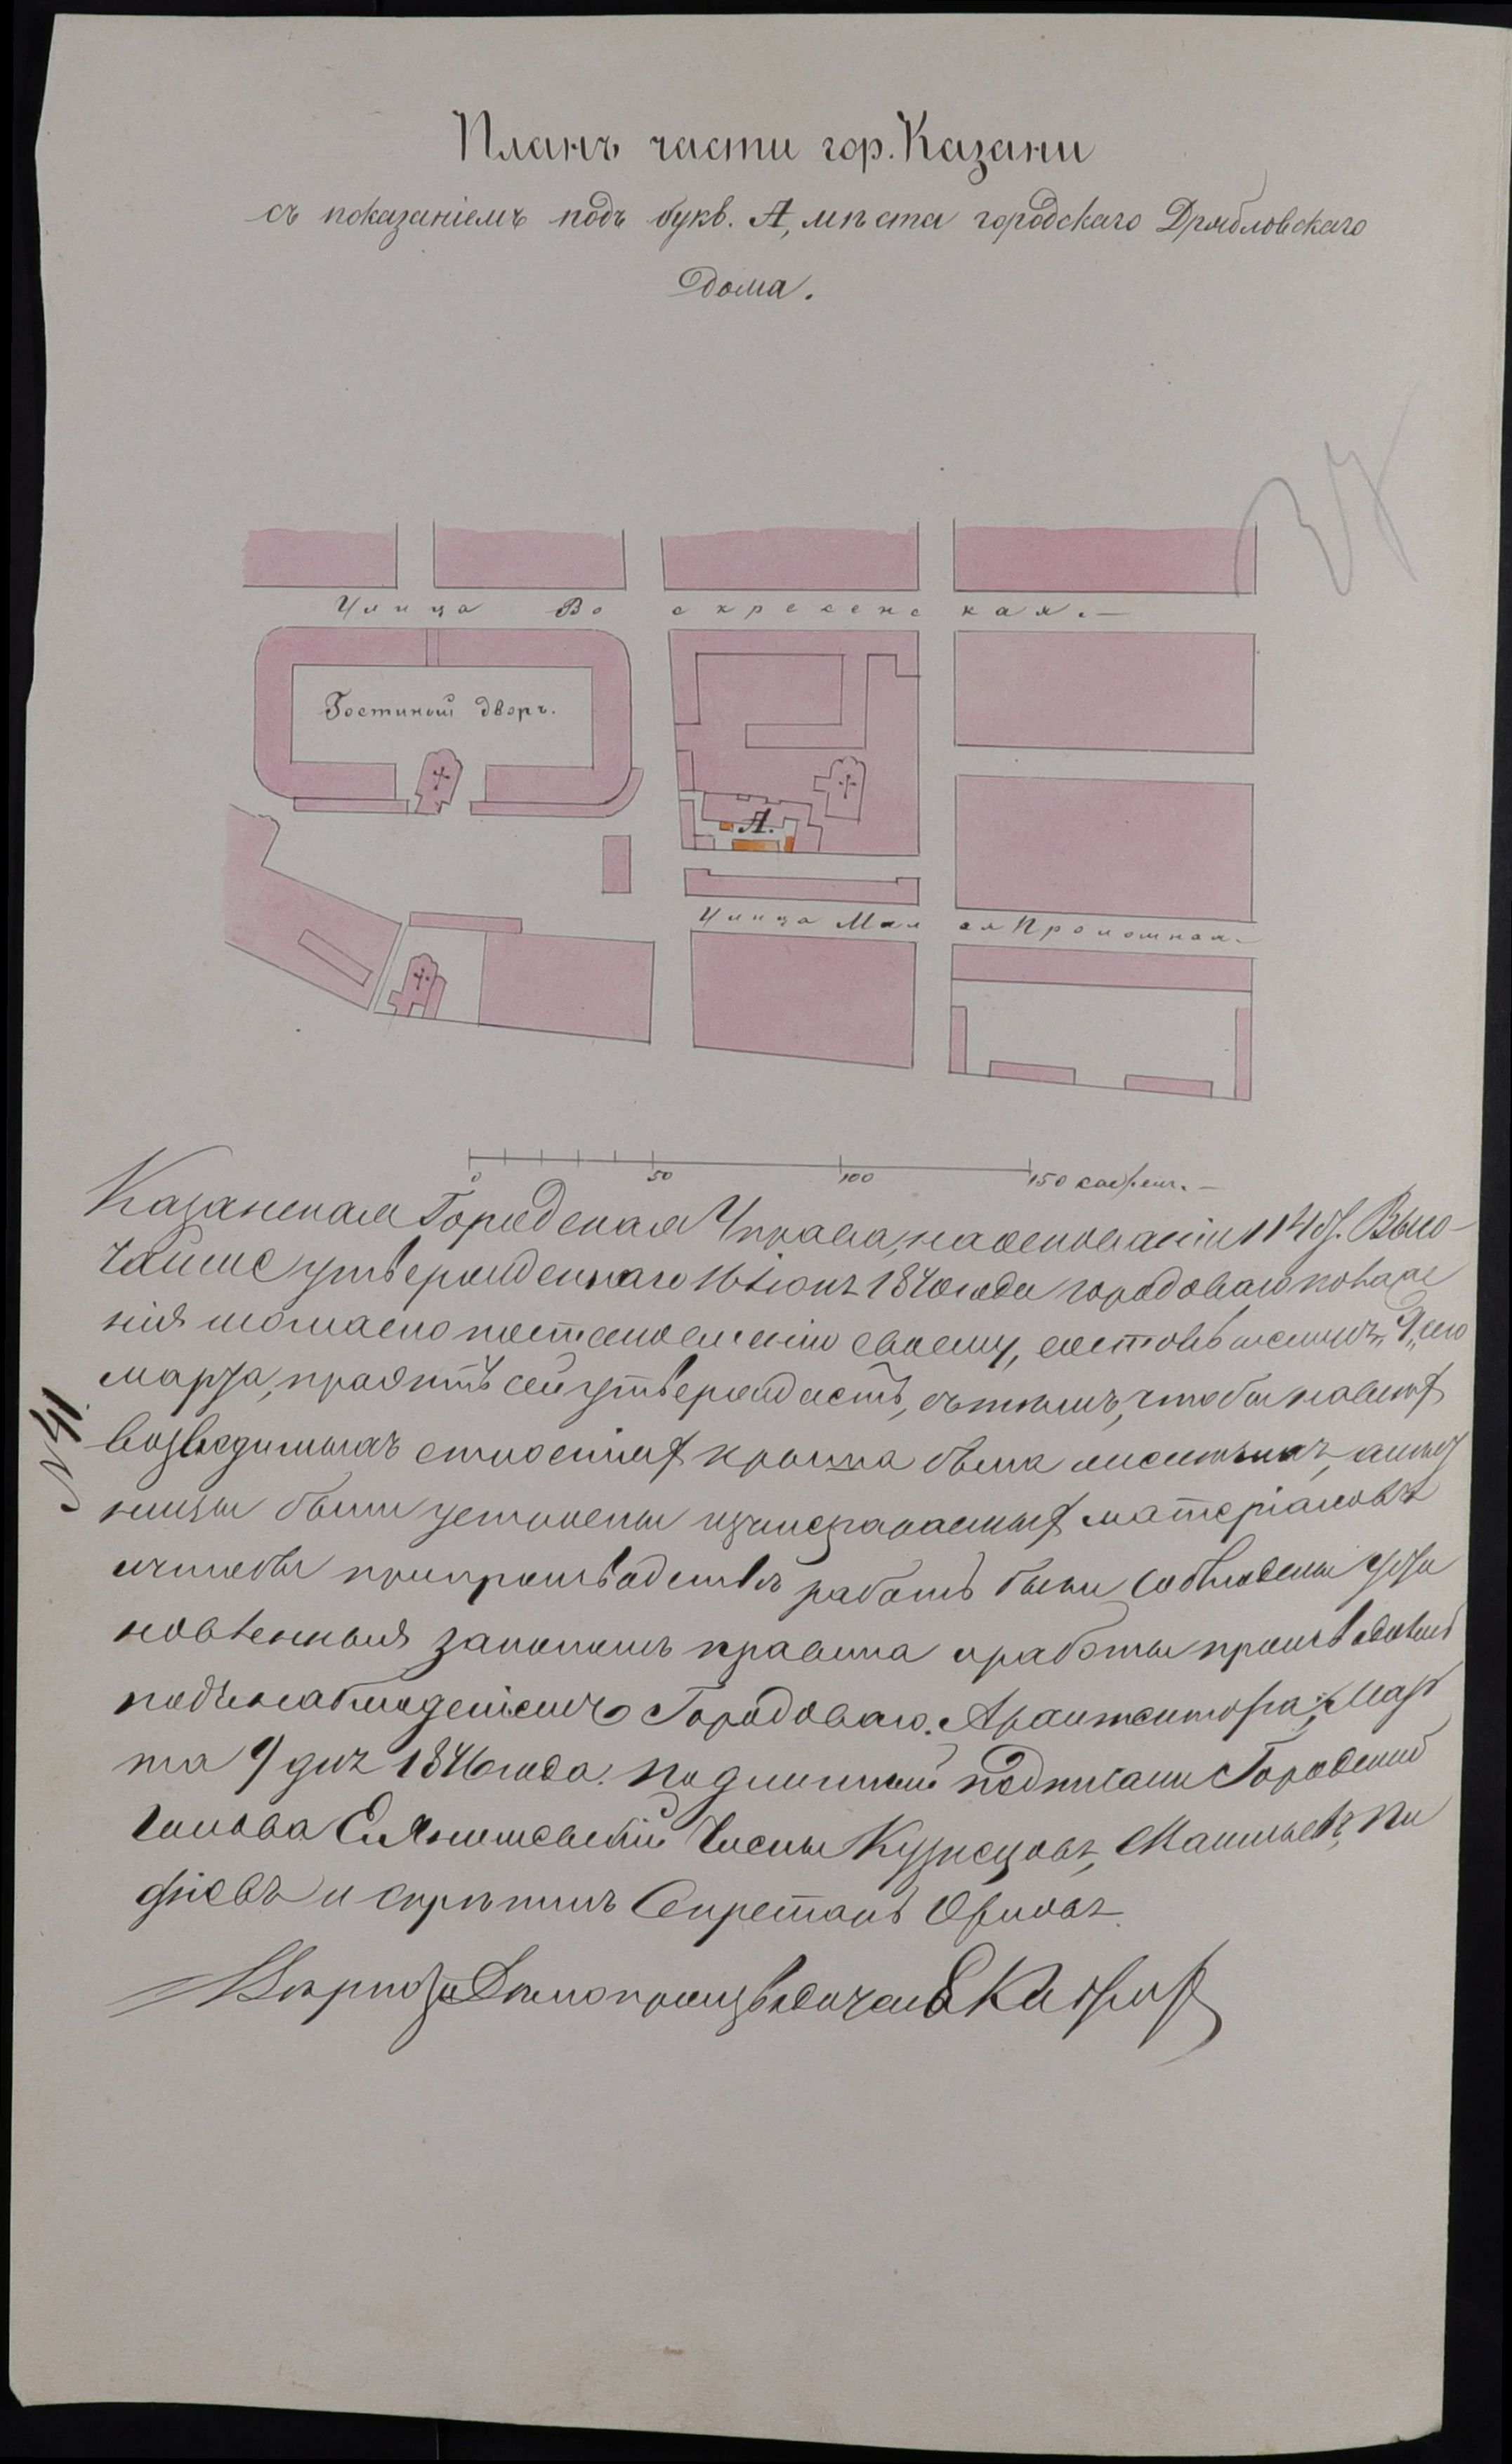 Планъ части гор. Казани
съ показаніемъ подъ букв. А, мѣста городскаго Дрябловскаго
Дома.
Улица Воскресенская.
Гостиный дворъ.
А.
Улица Малая Проломная.
0 50 100 150 сажен.
Казанская Городская Управа, на основаніи 114 ст. Высо-
чайше утвержденнаго 16 Іюня 1870 года городоваго положе
нія согласно постановленію своему, состоявшемуся 9 сего
марта, проэктъ сей утверждаетъ, съ тѣмъ, чтобы на вновь
возводимыхъ строеніях крыша была желѣзная, а лѣст
ницы были устроены изъ несгораемых матеріаловъ
и чтобы при производствѣ работъ были соблюдены уста
новленныя закономъ правила и работы производились
подъ наблюденіемъ Городоваго Архитектора. Мар
та 9 дня 1876 года. Подлинный подписали Городской
Голова Е. Янишевскій Члены Кузнецовъ,
и скрѣпилъ Секретарь
Вѣрно: За Дѣлопроизводителя
№ 41.